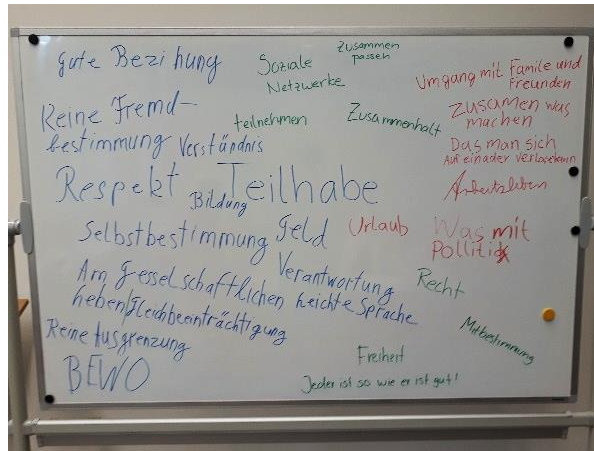 gute Bezihung
Soziale
Netzwerke
Zusammen
passen
Umgang mit Famile und
Freunden
Keine Fremd-
bestimmung
Verständnis
teilnehmen
Zusammenhalt
Zusamen was
machen
Das man sich
Auf einader verlassen kann
Respekt
Bildung
Teilhabe
Arbeitsleben
Selbstbestimmung
Geld
Urlaub
Was mit
Pollitik
Am gesselschaftlichen
heben
Verantwortung
Leichte Sprache
Recht
Gleichbeeinträchtigung
Keine Ausgrenzung
Mitbestimmung
BEWO
Freiheit
Jeder ist so wie er ist gut!